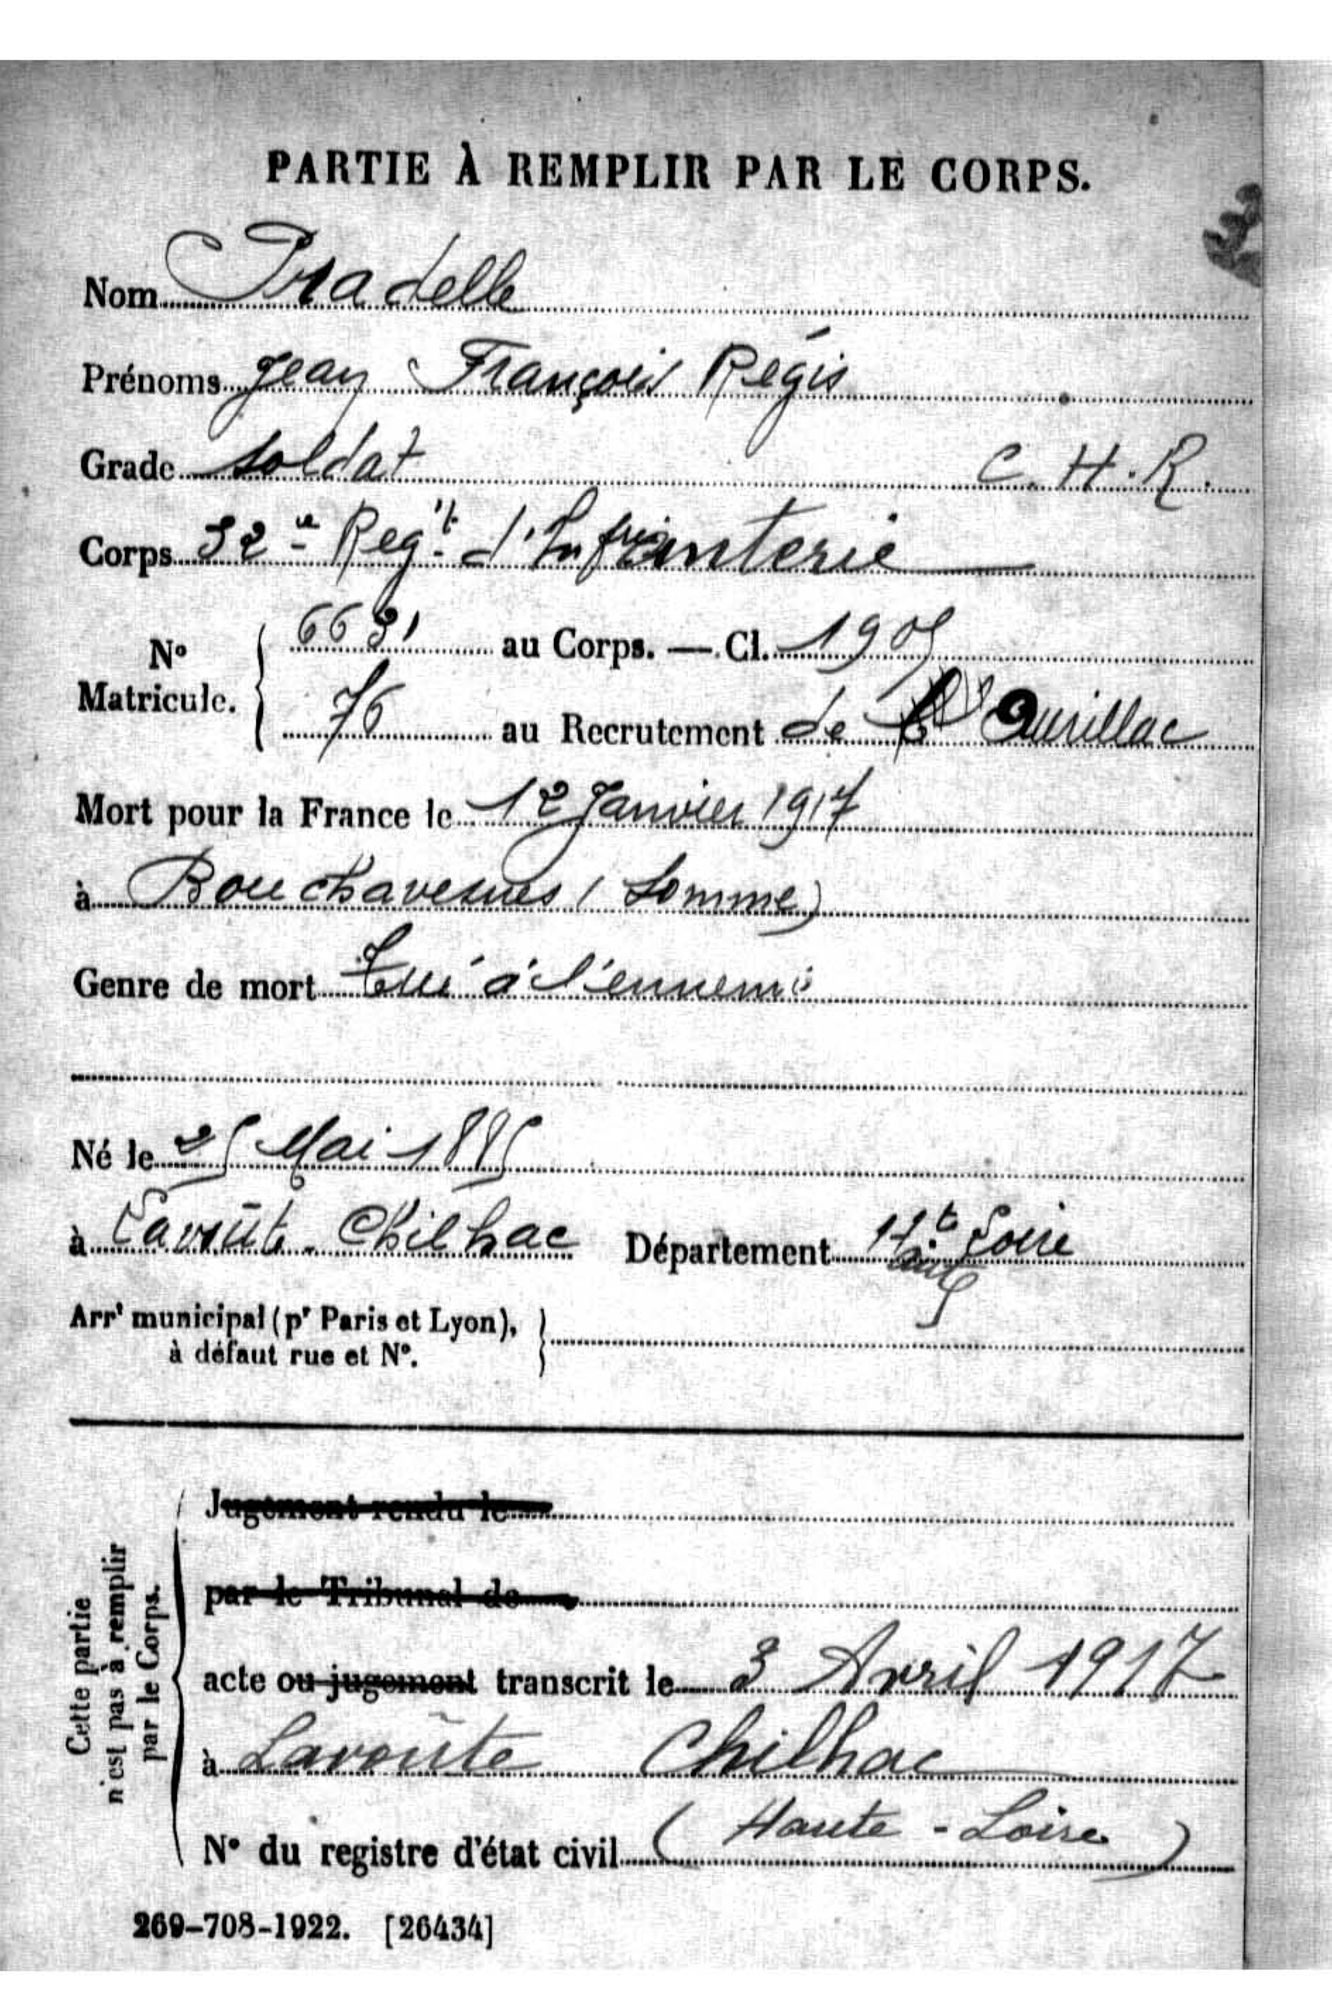 PARTIE À REMPLIR PAR LE CORPS.
Nom Pradelle
Prénoms Jean François Régis
Grade Soldat C.H.R.
Corps 32e Reg't d'Infanterie
6631 au Corps. — Cl. 1905
N° Matricule.
76 au Recrutement de Aurillac
Mort pour la France le 12 Janvier 1917
à Bouchavesnes (Somme)
Genre de mort Tué à l'ennemi
Né le 25 Mai 1885
à Lavoûte-Chilhac Département Hte Loire
Arrt municipal (pr Paris et Lyon),
à défaut rue et N°.
Cette partie
n'est pas à remplir
par le Corps.
Jugement rendu le
par le Tribunal de
acte ou jugement transcrit le 3 Avril 1917
à Lavoûte Chilhac
N° du registre d'état civil (Haute-Loire)
269-708-1922. [26434]